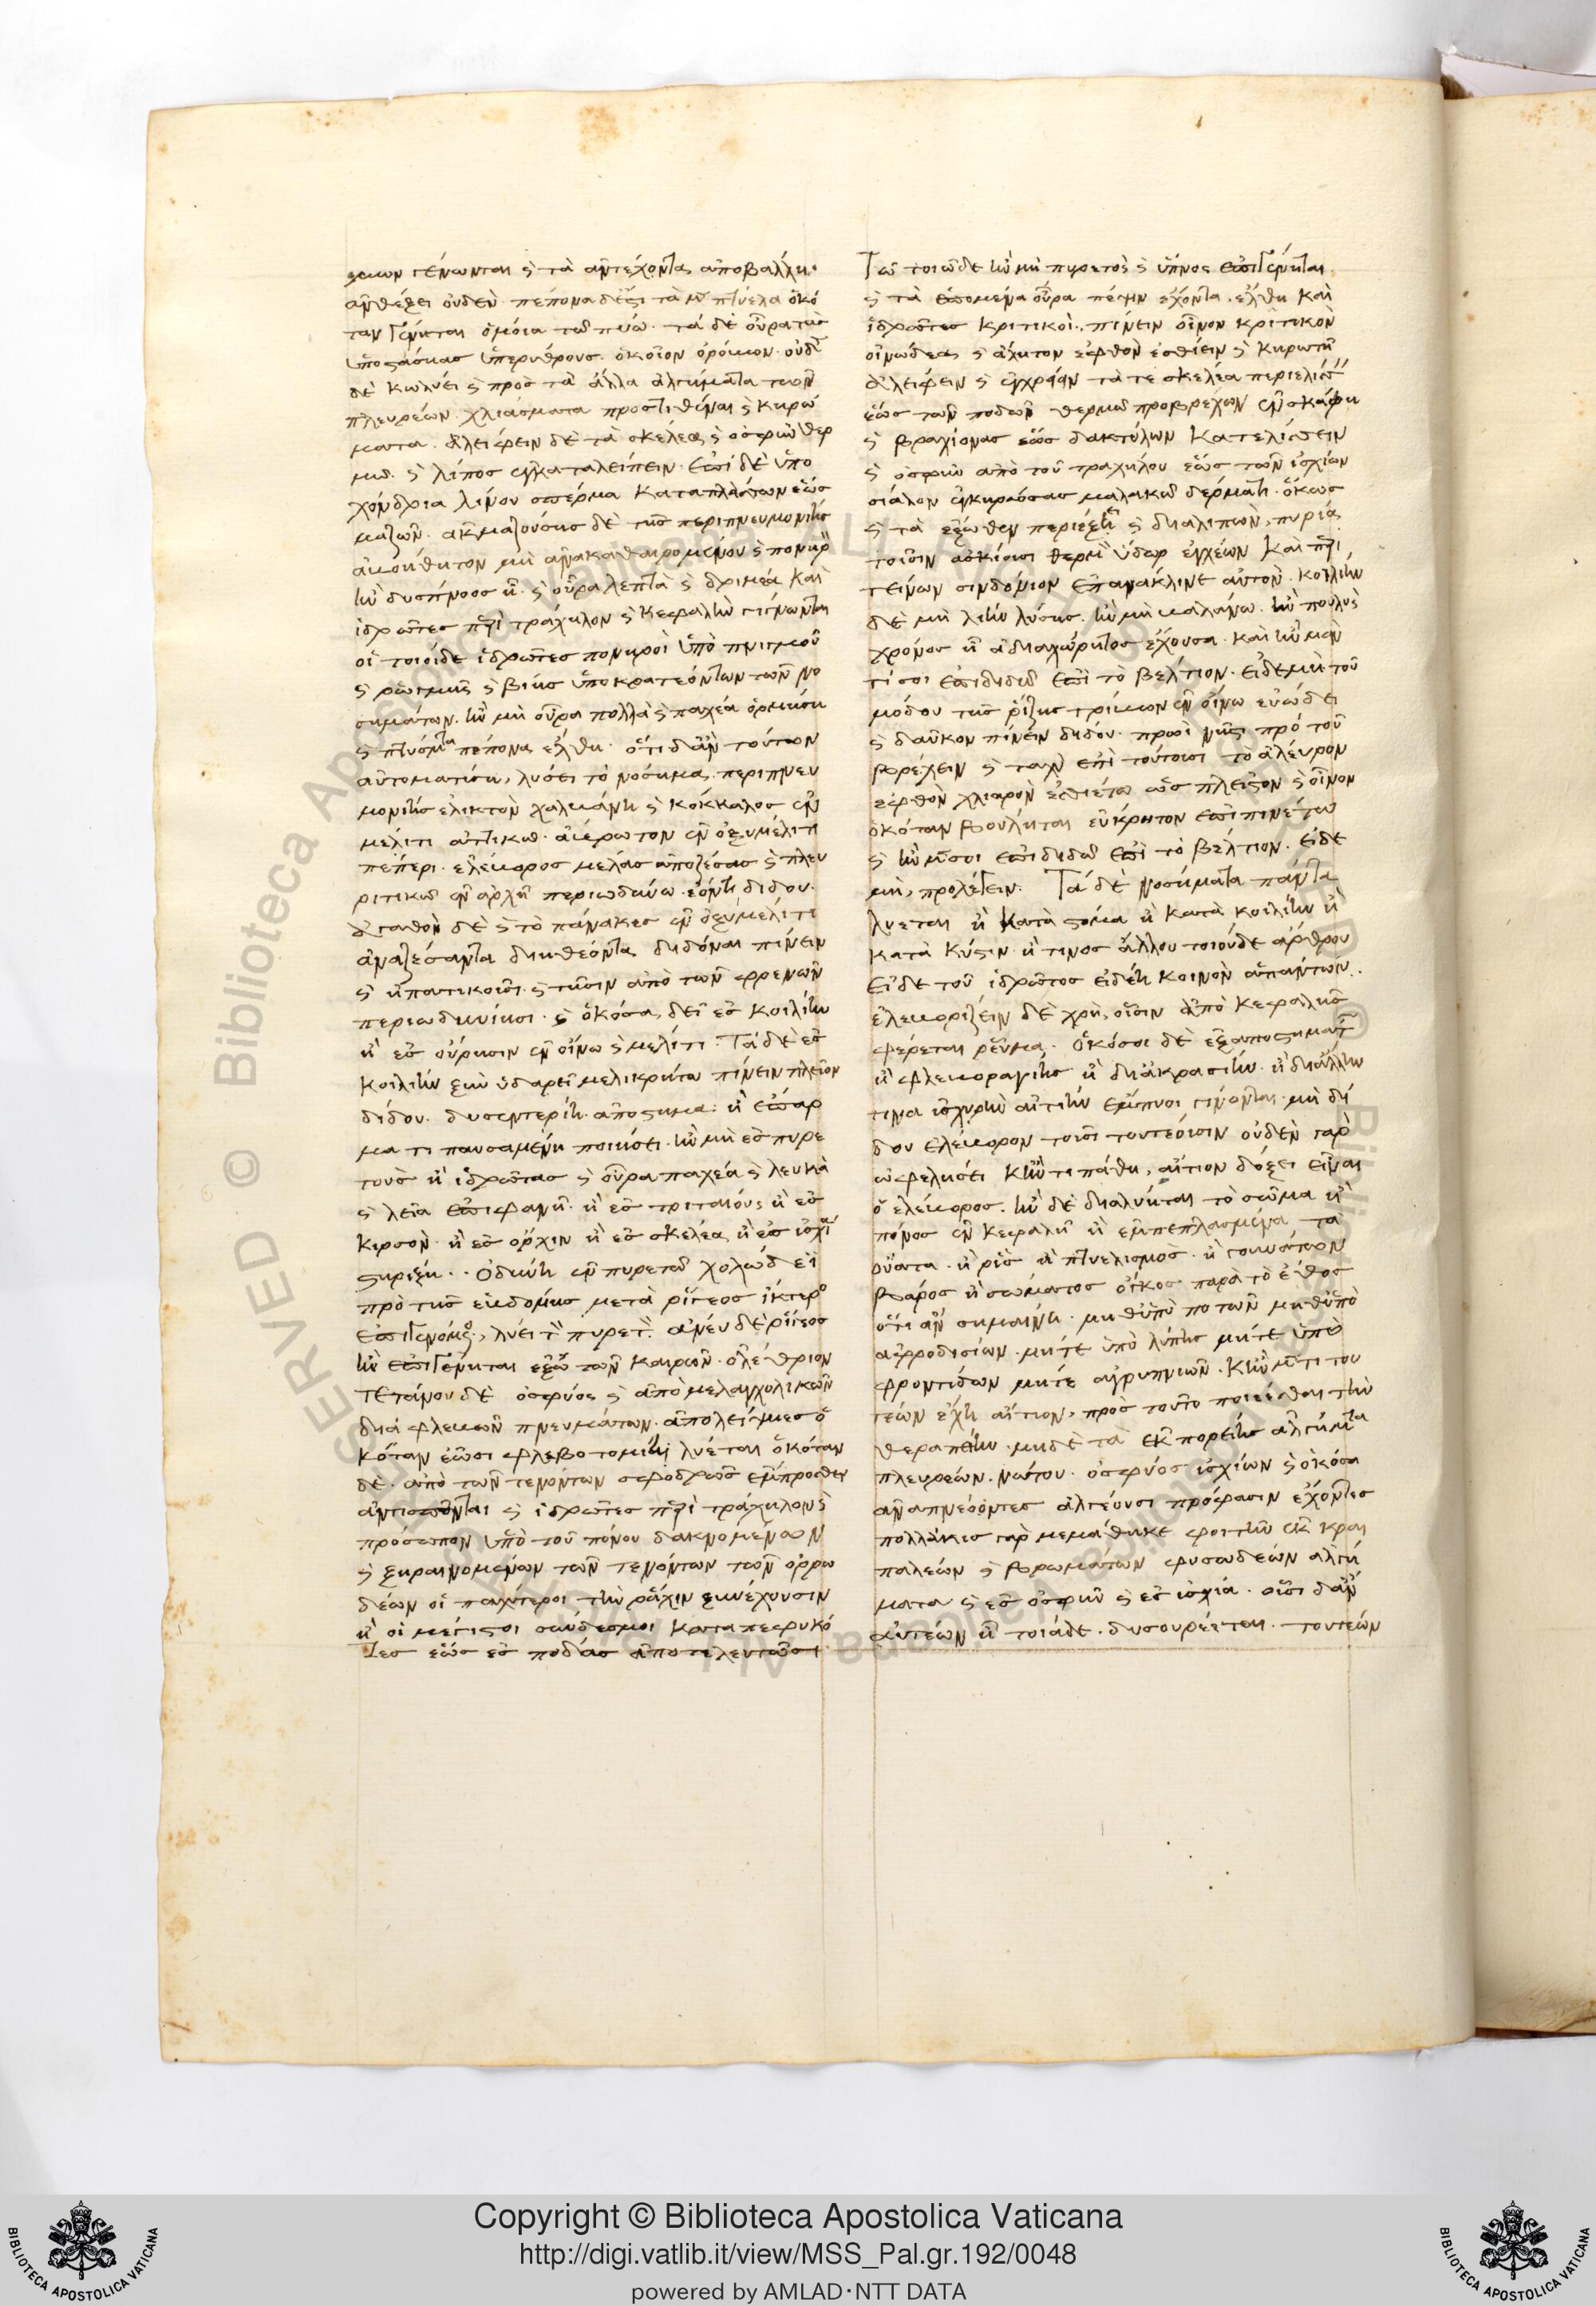 γένωνται καὶ τὰ ἀντέχοντα ἀποβαλλη·
ἀνθέξει οὐδέν· πέπονα δέ ἐστι τὰ πτύελα ὁκό
ταν γένηται ὁμοῖα τῷ πύῳ· τὰ δὲ οὖρα τὰς
ὑποστάσιας ὑπερύθρους· ὁκοῖον ὀρόβιον· οὐδὲν
δὲ κωλύει καὶ πρὸς τὰ ἄλλα ἀλγήματα τῶν
πλευρέων· χλιάσματα προστιθέναι καὶ κηρώ
ματα· ἀλείφειν δὲ τὰ σκέλεα καὶ ὀσφὺν θερ
μῷ· καὶ λίπος ἐγκαταλείπειν· ἐπὶ δὲ ὑπο
χόνδρια λίνου σπέρμα καταπλάσσων ἕως
μαζῶν· ἀκμαζούσης δὲ τῆς περιπνευμονίης
ἀβοήθητον μὴ ἀνακαθαιρομένου καὶ πονηρὸν
ἢν δύσπνοος ᾖ· καὶ οὖρα λεπτὰ καὶ δριμέα καὶ
ἱδρῶτες περὶ τράχηλον καὶ κεφαλὴν γίνωνται
οἱ τοιοίδε ἱδρῶτες πονηροὶ ὑπὸ πνιγμοῦ
καὶ ῥώμης καὶ βίης ὑποκρατεόντων τῶν νο
σημάτων· ἢν μὴ οὖρα πολλὰ καὶ παχέα ὁρμήσῃ
καὶ πτύσματα πέπονα ἔλθῃ· ὅτι δ' ἂν τούτων
αὐτοματίσῃ, λύσει τὸ νόσημα. περιπνευ
μονίης ἐλικτὸν χαλβάνη καὶ κόκκαλος ἐν
μέλιτι ἀττικῷ· ἀβρότονον ἐν ὀξυμέλιτι
πέπερι· ἐλλέβορος μέλας ἀποζέσας καὶ πλευ
ριτικῷ ἐν ἀρχῇ περιωδύνῳ ἐόντι δίδου·
ἀγαθὸν δὲ καὶ τὸ πάνακες ἐν ὀξυμέλιτι
ἀναζέσαντα διηθέοντα διδόναι πίνειν
καὶ ἡπατικοῖσι· καὶ τῇσιν ἀπὸ τῶν φρενῶν
περιωδυνίῃσι· καὶ ὁκόσα δεῖ ἐς κοιλίην
ἢ ἐς οὔρησιν ἐν οἴνῳ καὶ μέλιτι· Τὰ δὲ ἐς
κοιλίην ξὺν ὑδαρεῖ μελικρήτῳ πίνειν πλεῖον
δίδου· δυσεντερίη ἀπόστημα· ἢ ἔπαρ
μά τι παυσαμένη ποιήσει· ἢν μὴ ἐς πυρε
τοὺς ἢ ἱδρῶτας καὶ οὖρα παχέα καὶ λευκὰ
καὶ λεῖα ἐπιφανῇ· ἢ ἐς τριταίους ἢ ἐς
κιρσὸν· ἢ ἐς ὄρχιν ἢ ἐς σκέλεα ἢ ἐς ἰσχία
στηρίξῃ· Ὀδύνη ἐν πυρετῷ χολώδει
πρὸ τῆς ἑβδόμης μετὰ ῥίγεος ἴκτερος
ἐπιγενόμενος, λύει τὸν πυρετόν. ἄνευ δὲ ῥίγεος
ἢν ἐπιγένηται ἔξω τῶν καιρῶν· ὀλέθριον
Τετάνου δὲ ὀσφύος καὶ ἀπὸ μελαγχολικῶν
διὰ φλεβῶν πνευμάτων· ἀπολείψιες ὁ
κόταν ἔωσι φλεβοτομίη λύεται ὁκόταν
δὲ ἀπὸ τῶν τενόντων σφοδρῶς ἔμπροσθεν
ἀντισπῶνται καὶ ἱδρῶτες περὶ τράχηλον καὶ
πρόσωπον ὑπὸ τοῦ πόνου δακνομένων
καὶ ξηραινομένων τῶν τενόντων τῶν ὀρρω
δέων οἱ παχύτεροι τὴν ῥάχιν ξυνέχουσιν
ἢ οἱ μέγιστοι σύνδεσμοι καταπεφυκό
τες ἕως ἐς πόδας ἀποτελευτῶσι
Τῷ τοιῷδε ἢν μὴ πυρετὸς καὶ ὕπνος ἐπιγένηται
καὶ τὰ ἑπόμενα οὖρα πέψιν ἔχοντα ἔλθῃ καὶ
ἱδρῶτες κριτικοί, πίνειν οἶνον κριτικὸν
οἰνώδεα καὶ ἄλητον ἑφθὸν ἐσθίειν καὶ κηρωτῇ
ἀλείφειν καὶ ἐγχρίειν τά τε σκέλεα περιελίσσειν
ἕως τῶν ποδῶν θερμῷ προβρέχων ἐν σκάφῃ
καὶ βραχίονας ἕως δακτύλων κατελίσσειν
καὶ ὀσφὺν ἀπὸ τοῦ τραχήλου ἕως τῶν ἰσχίων
σίαλον ἐγκηρώσας μαλακῷ δέρματι ὅκως
καὶ τὰ ἔξωθεν περιέξῃ· καὶ διαλιπὼν, πυρία
τοῖσιν ἀσκίοισι θερμὸν ὕδωρ ἐγχέων καὶ περι
τείνων σινδόνιον ἐπανάκλινε αὐτόν· κοιλίην
δὲ μὴ λίην λύσῃς ἢν μὴ βαλάνῳ· ἢν πουλὺς
χρόνος ᾖ ἀδιαχώρητος ἔχουσα· καὶ ἢν μέν
τί σοι ἐπιδιδῷ ἐπὶ τὸ βέλτιον· εἰ δὲ μὴ τοῦ
μόδου τῆς ῥίζης τρίβων ἐν οἴνῳ εὐώδει
καὶ δαῦκον πίνειν δίδου· πρωῒ νῆστι πρὸ τοῦ
βρέχειν καὶ ταχὺ ἐπὶ τούτοισι τὸ ἄλευρον
ἑφθὸν χλιαρὸν ἐσθιέτω ὡς πλεῖστον καὶ οἶνον
ὁκόταν βούληται εὔκρητον ἐπιπινέτω
καὶ ἢν μέν σοι ἐπιδιδῷ ἐπὶ τὸ βέλτιον· εἰ δὲ
μὴ, προλέγειν. Τὰ δὲ νοσήματα πάντα
λύεται ἢ κατὰ στόμα ἢ κατὰ κοιλίην ἢ
κατὰ κύστιν ἤ τινος ἄλλου τοιούδε ἄρθρου
Εἰ δὲ τοῦ ἱδρῶτος εἰδέη κοινὸν ἁπάντων.
ἐλλεβορίζειν δὲ χρὴ, οἷσιν ἀπὸ κεφαλῆς
φέρεται ῥεῦμα. Ὁκόσοι δὲ ἐξ ἀποστημάτων
ἢ φλεβοραγίης ἢ δι' ἀκρασίην ἢ δι' ἄλλην
τινὰ ἰσχυρὴν αἰτίην ἔμπυοι γίνονται· μὴ δί
δου ἐλλέβορον τοῖσι τουτέοισιν οὐδὲν γὰρ
ὠφελήσει κἤν τι πάθῃ, αἴτιον δόξει εἶναι
ὁ ἐλλέβορος. ἢν δὲ διαλύηται τὸ σῶμα ἢ
πόνος ἐν κεφαλῇ ἢ ἐμπεπλασμένα τὰ
οὔατα ἢ ῥὶς ἢ πτυελισμὸς ἢ γουνάτων
βάρος ἢ σώματος ὄγκος παρὰ τὸ ἔθος
ὅτι ἂν σημαίνῃ· μήθ' ὑπὸ ποτῶν μήθ' ὑπὸ
ἀφροδισίων· μήτε ὑπὸ λύπης μήτε ὑπὸ
φροντίδων μήτε ἀγρυπνιῶν. κἢν μέν τι του
τέων ἔχῃ αἴτιον, πρὸς τοῦτο ποιεέσθαι τὴν
θεραπείην· μηδὲ τὰ ἐκ πορείης ἀλγήματα
πλευρέων. νώτου· ὀσφύος ἰσχίων καὶ ὁκόσα
ἀναπνέοντες ἀλγέουσι πρόφασιν ἔχοντες
πολλάκις γὰρ μεμάθηκε φοιτῆν ἐκ κραι
παλέων καὶ βρωμάτων φυσωδέων ἀλγή
ματα καὶ ἐς ὀσφῦν καὶ ἐς ἰσχία· οἷσι δ' ἂν
αὐτέων ᾖ τοιάδε· δυσουρέεται· τουτέων
Copyright © Biblioteca Apostolica Vaticana
http://digi.vatlib.it/view/MSS_Pal.gr.192/0048
powered by AMLAD·NTT DATA
BIBLIOTECA APOSTOLICA VATICANA
BIBLIOTECA APOSTOLICA VATICANA